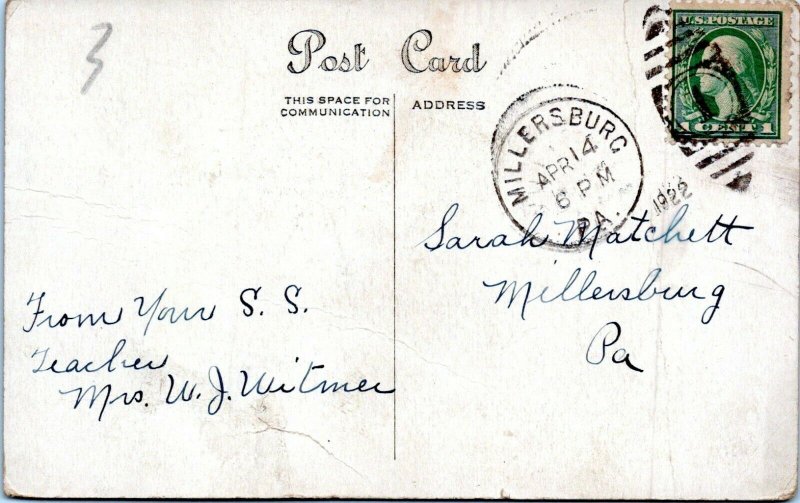 3
Post Card
THIS SPACE FOR
COMMUNICATION
ADDRESS
U.S. POSTAGE
1 CENT 1
MILLERSBURG
APR 14
6 PM
PA.
1922
Sarah Matchett
Millersburg
Pa
From Your S. S.
Teacher
Mrs. W. J. Witmer